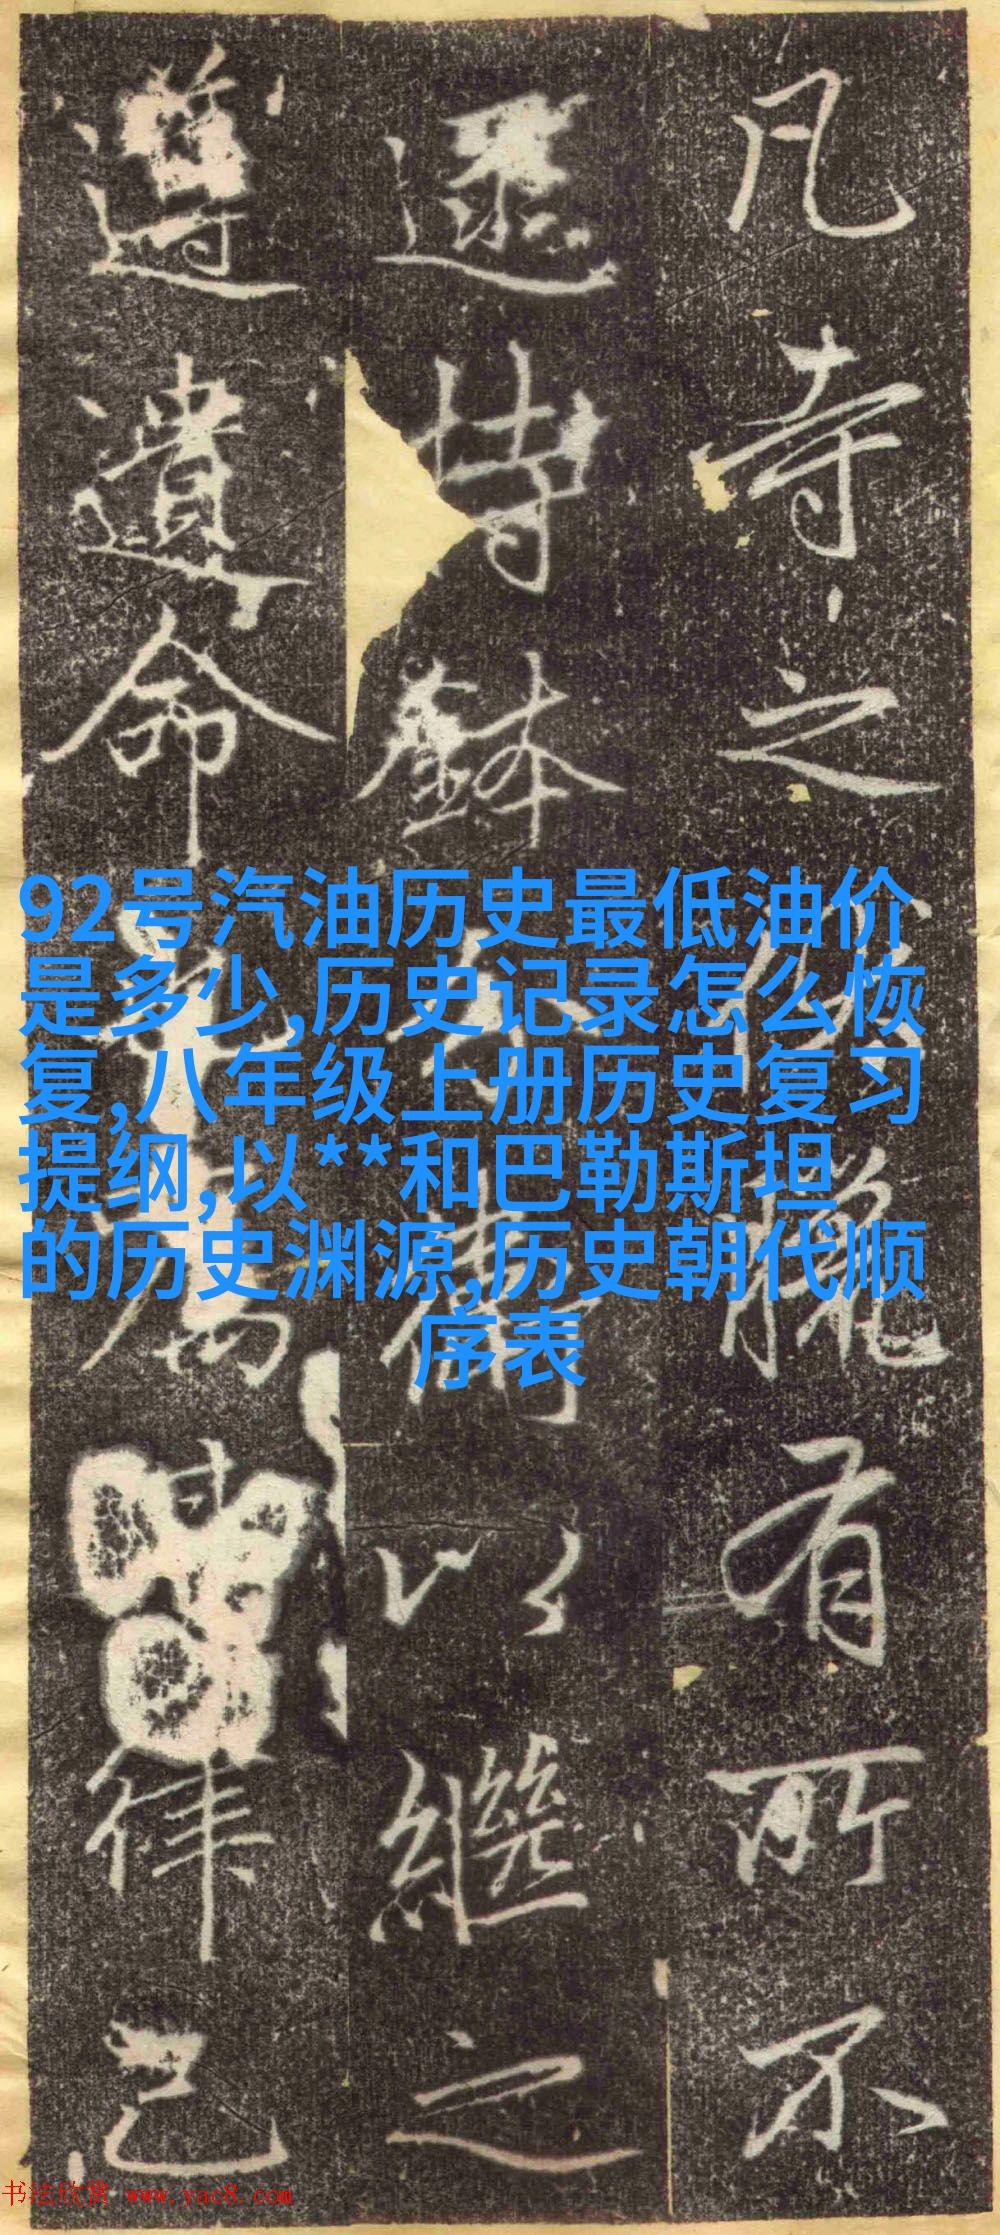 凡寺之伏臘有所不
遝持鉢
術以繼之
遵遺命
律己
92号汽油历史最低油价
是多少,历史记录怎么恢
复,八年级上册历史复习
提纲,以**和巴勒斯坦
的历史渊源,历史朝代顺
序表
书法欣赏 www.yac8.com